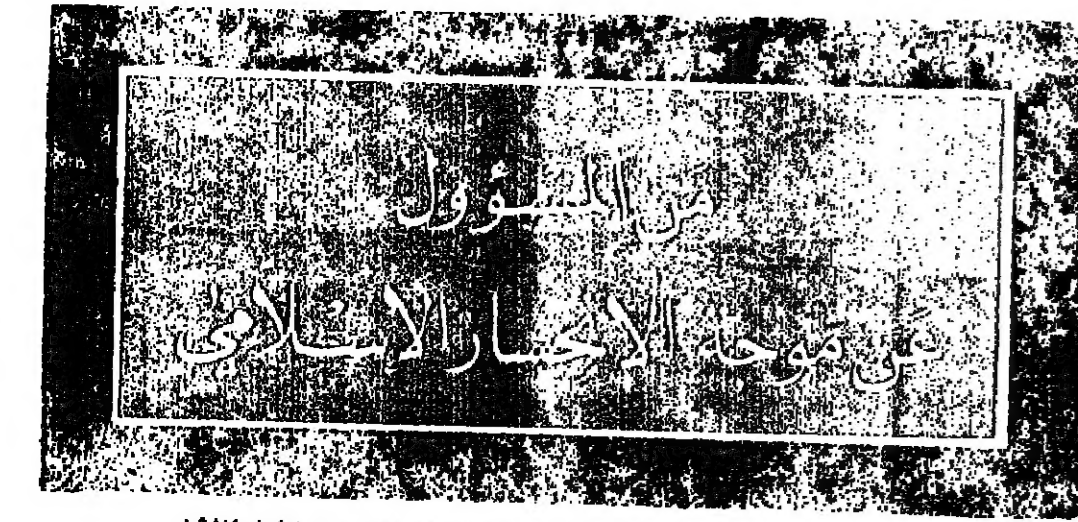 من المسؤول
عن موجة الانحسار الاسلامي